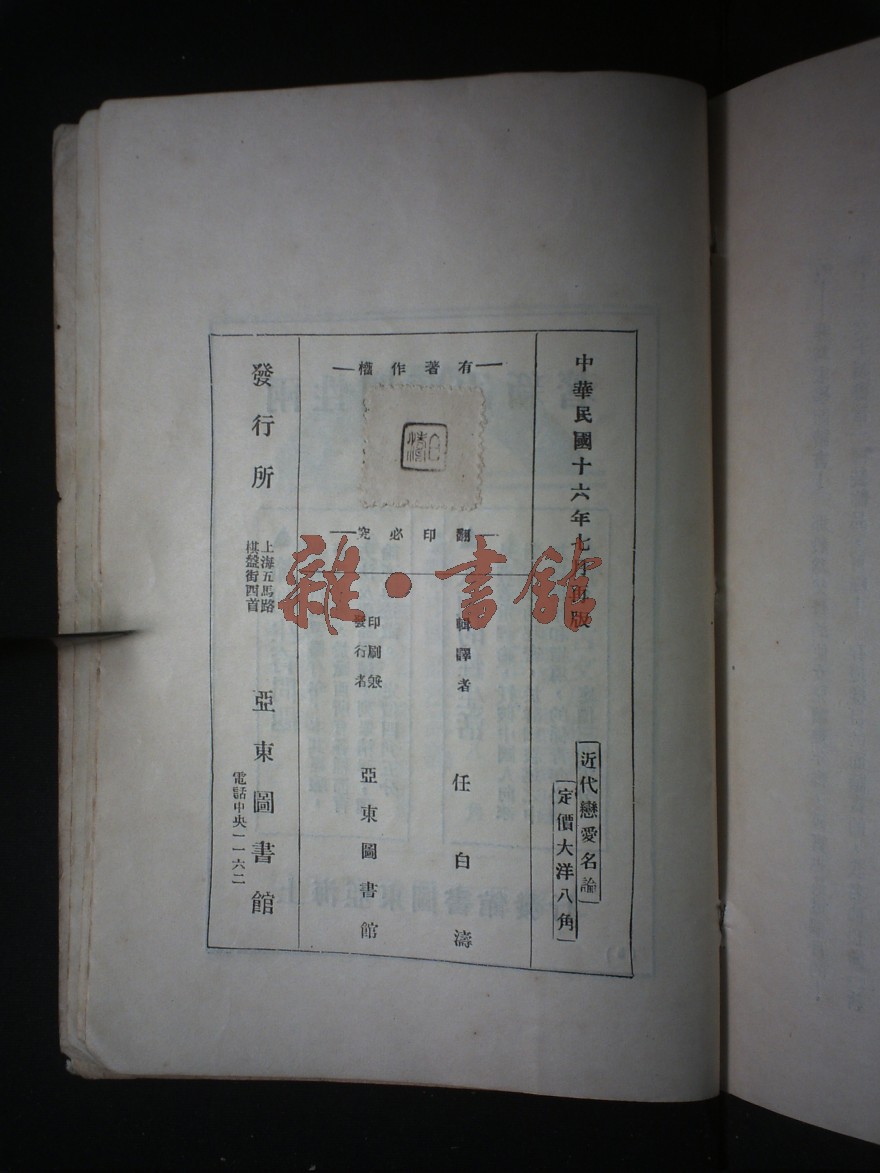 中華民國十六年七月再版
近代戀愛名論
定價大洋八角
有著作權
白濤
翻印必究
輯譯者 任白濤
印刷兼
發行者
亞東圖書館
發行所
上海五馬路
棋盤街西首
亞東圖書館
電話中央一一六二
雜·書館